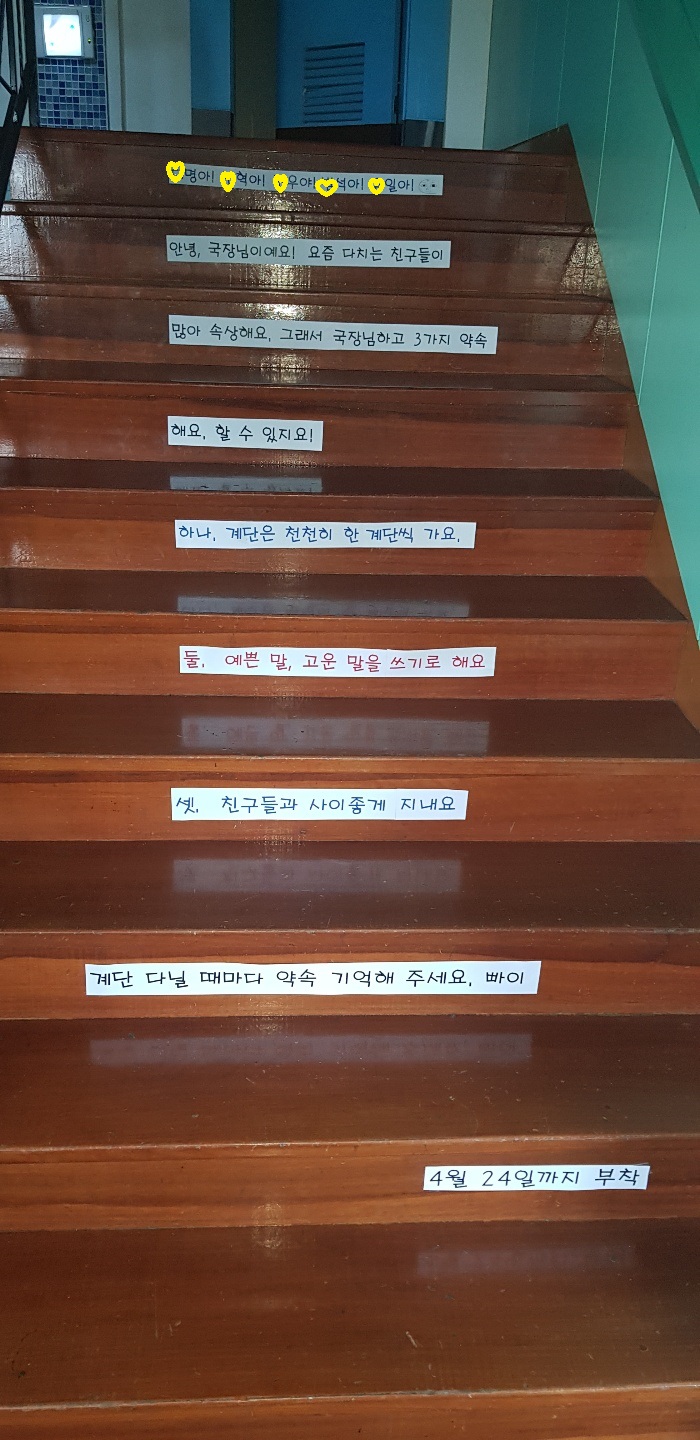 명아! 혁아! 우야! 석아! 일아!
안녕, 국장님이예요! 요즘 다치는 친구들이
많아 속상해요, 그래서 국장님하고 3가지 약속
해요, 할 수 있지요!
하나, 계단은 천천히 한 계단씩 가요,
둘, 예쁜 말, 고운 말을 쓰기로 해요
셋, 친구들과 사이좋게 지내요
계단 다닐 때마다 약속 기억해 주세요, 빠이
4월 24일까지 부착